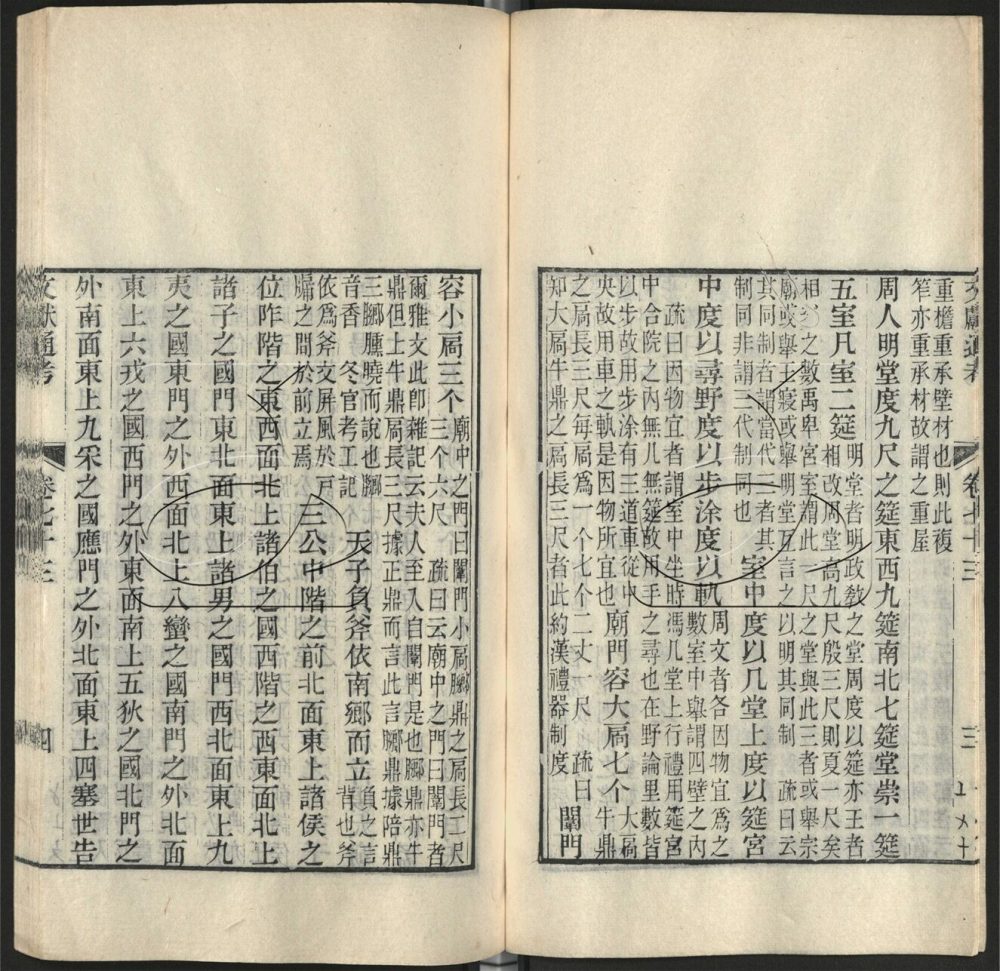 文獻通考 卷七十三 三
重檐重承壁材也則此複
笮亦重承材故謂之重屋
周人明堂度九尺之筵東西九筵南北七筵堂崇一筵
五室凡室二筵
明堂者明政敎之堂周度以筵亦王者
相改周堂高九尺殷三尺則夏一尺矣
相參之數禹卑宮室謂此一尺之堂與此三者或舉宗
廟或舉王寢或舉明堂互言之以明其同制 疏曰云
其同制者謂當代三者其
制同非謂三代制同也
室中度以几堂上度以筵宮
中度以尋野度以步涂度以軌
周文者各因物宜爲之
數室中舉謂四壁之內
疏曰因物宜者謂室中坐時馮几堂上行禮用筵宮
中合院之內無几無筵故用手之尋也在野論里數皆
以步故用步涂有三道車從中
央故用車之軌是因物所宜也
廟門容大扃七个
大扃
牛鼎
之扃長三尺每扃爲一个七个二丈一尺 疏曰
知大扃牛鼎之扃長三尺者此約漢禮器制度
闈門
容小扃三个
廟中之門曰闈門小扃膷鼎之扃長二尺
三个六尺 疏曰云廟中之門曰闈門者
爾雅文此卽雜記云夫人至入自闈門是也膷鼎亦牛
鼎但上牛鼎扃長三尺據正鼎而言此言膷鼎據陪鼎
三膷臐膮而說也膷
音香 冬官考工記
天子負斧依南鄉而立
負之言
背也斧
依爲斧文屏風於戶
牖之間於前立焉
三公中階之前北面東上諸侯之
位阼階之東西面北上諸伯之國西階之西東面北上
諸子之國門東北面東上諸男之國門西北面東上九
夷之國東門之外西面北上八蠻之國南門之外北面
東上六戎之國西門之外東面南上五狄之國北門之
外南面東上九采之國應門之外北面東上四塞世告
文獻通考 卷七十三 四